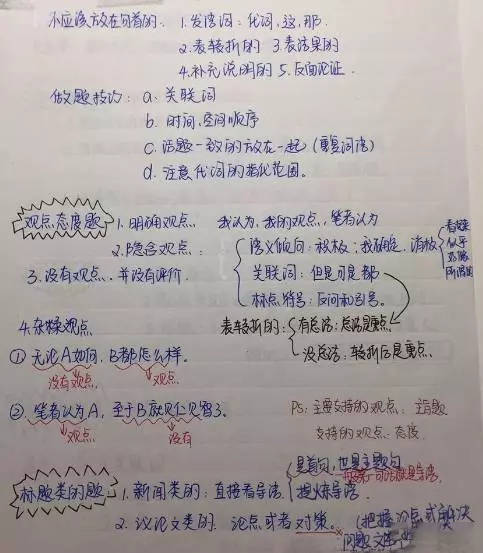 不应该放在句首的. 1.发语词:代词,这,那.
2.表转折的 3.表结果的
4.补充说明的 5.反面论证.
做题技巧: a. 关联词
b. 时间,空间顺序
c. 话题一致的放在一起(重复词语)
d. 注意代词的指代范围。
观点态度题 1.明确观点. 我认为,我的观点,笔者认为
2.隐含观点:
语义倾向:积极:我确定. 消极
看
似乎
所谓
3.没有观点.并没有评价
关联词:但是可是都
标点符号:反问和引号。
4.杂糅观点
表转折的: 有总结:总结是重点
没总结:转折后是重点.
① 无论A如何,B都怎么样。
没有观点. 观点.
②. 笔者认为A,至于B就见仁见智了。
观点 没有
PS:主要支持的观点:主旨题
支持的观点:态度.
标题类的题 1.新闻类的:直接看导语
是首句,也是主题句
提炼导语.
2.议论文类的. 论点或者对策。 (把握论点或解决
问题